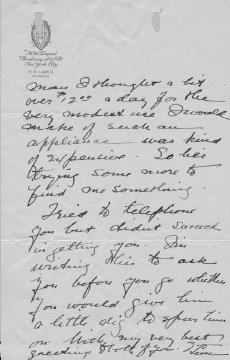 The Hotel Empire
Broadway at 63rd St.
New York City
man I thought a bit
over $12.00 a day for the
very modest use I would
make of such an
appliance was kind
of expensive. So he's
trying some more to
find me something.
Tried to telephone
you but didnt succeed
in getting you. Im
writing this to ask
you before you go whether
you would give him
a little dig to spur him
on. With my very best
greetings